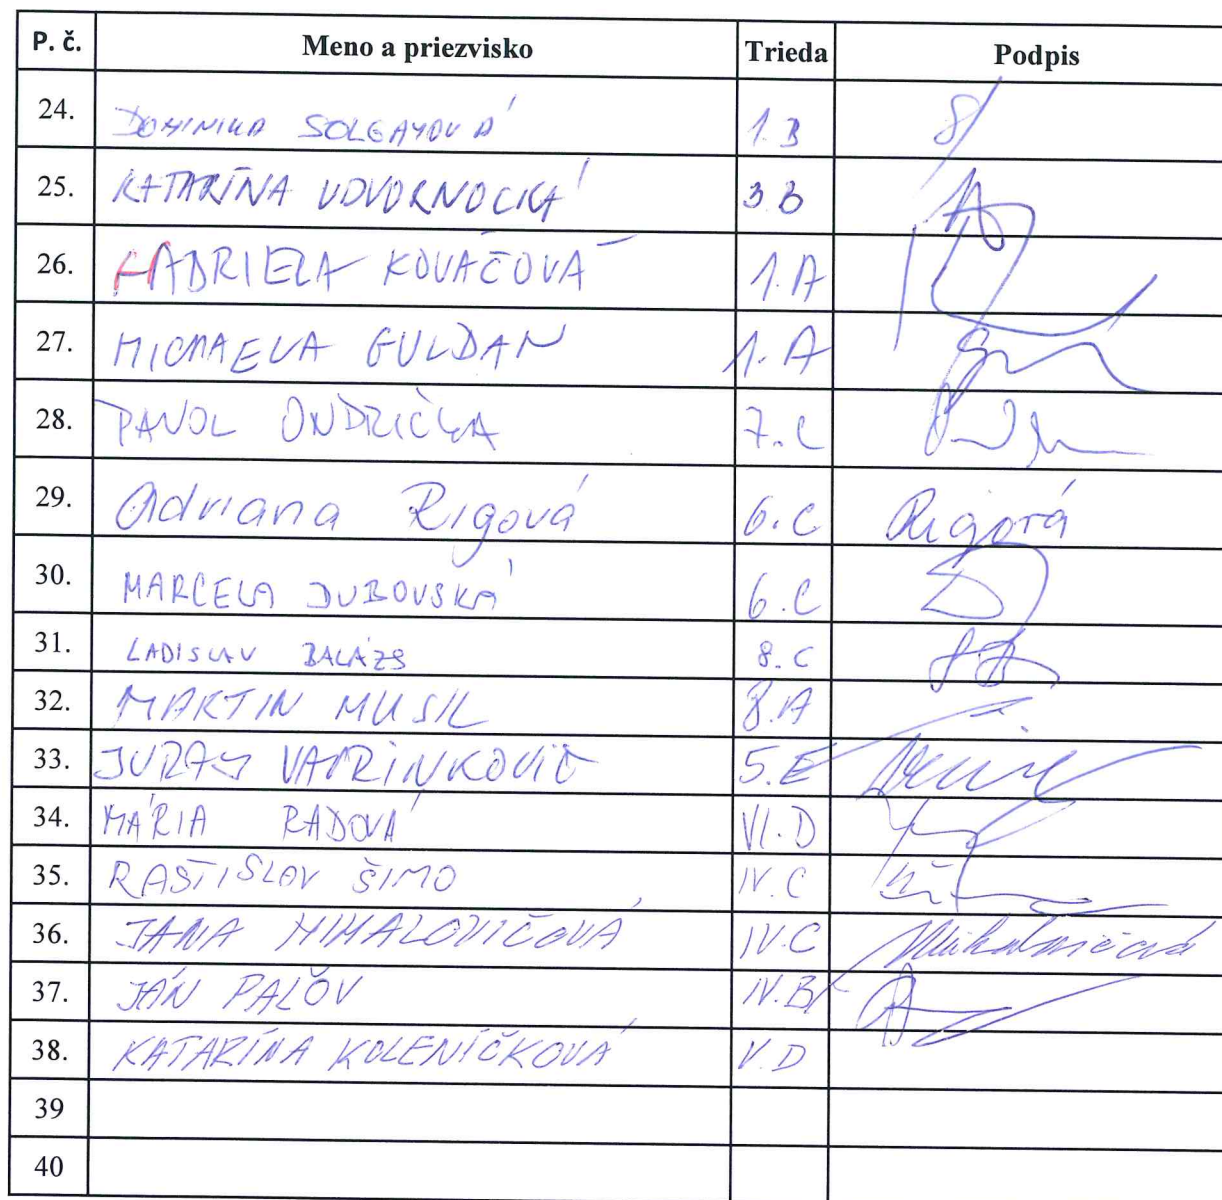 P. č. Meno a priezvisko Trieda Podpis
24. DOMINIKA SOLGAYOVÁ 1.B
25. KATARÍNA UDVORNOCKÁ 3.B
26. GABRIELA KOVÁČOVÁ 1.A
27. MICHAELA GULDAN 1.A
28. PAVOL ONDRIČKA 7.C
29. Adriana Rigová 6.C Rigová
30. MARCELA DUBOVSKÁ 6.C
31. LADISLAV BALÁZS 8.C
32. MARTIN MUSIL 8.A
33. JURAJ VAVRINKOVIČ 5.E
34. MÁRIA RADOVÁ VI.D
35. RASTISLAV ŠIMO IV.C
36. JANA MIHALOVIČOVÁ IV.C Mihalovičová
37. JÁN PALŠOV IV.B
38. KATARÍNA KOLENIČKOVÁ V.D
39
40